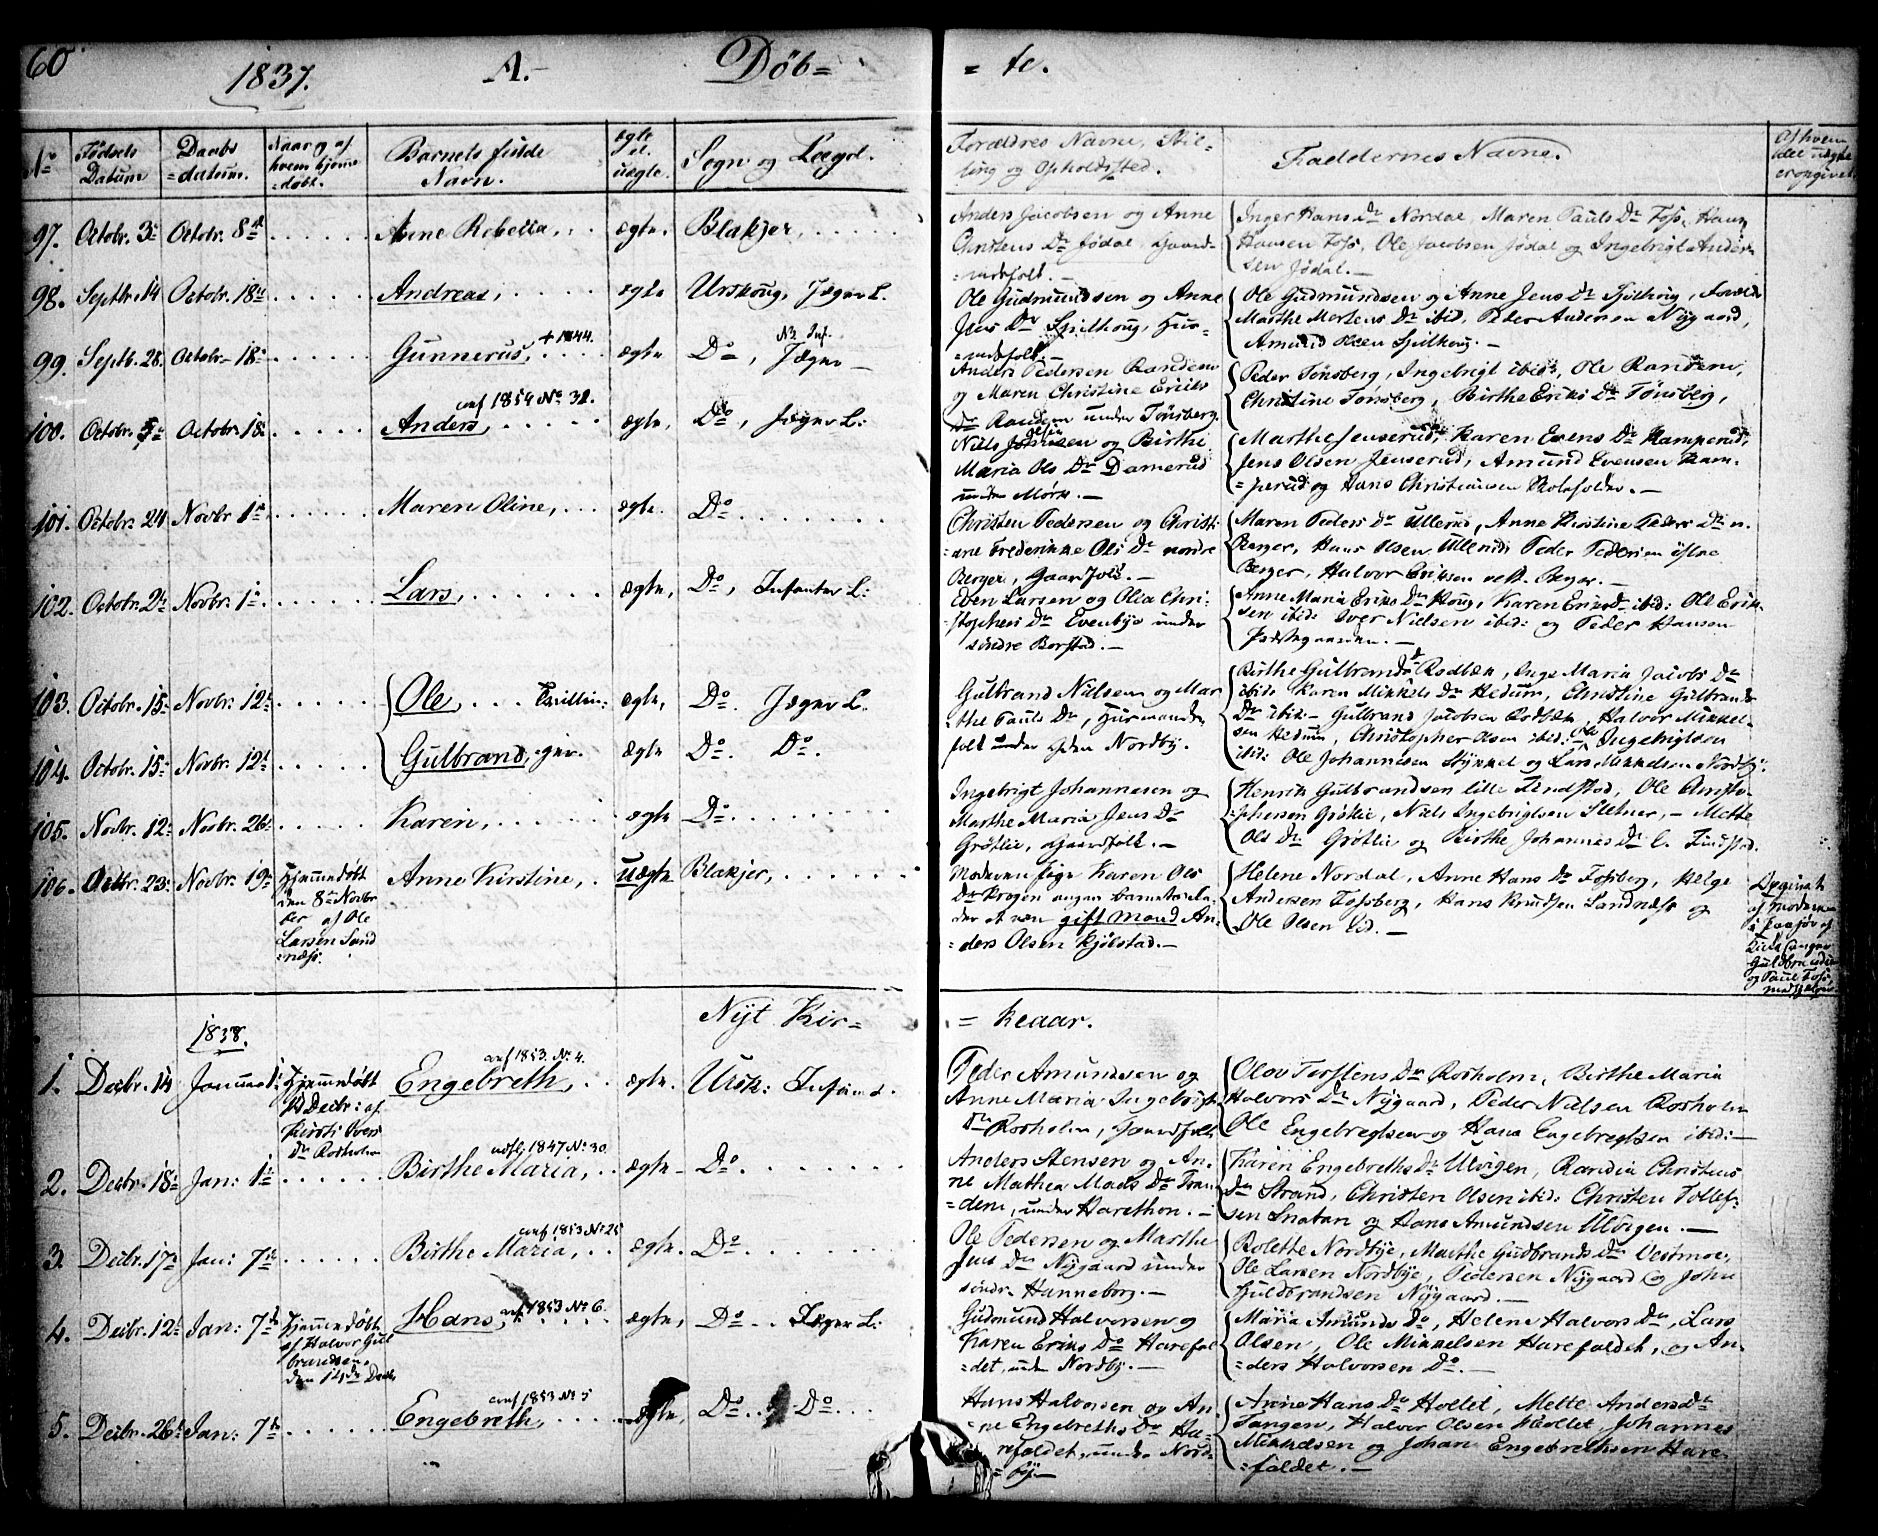 60
1837. A. Döb= = te.
No
Födsels Datum
Daabs =datum.
Naar og af hvem hjemme =döbt.
Barnets fulde Navn.
ægte el. uægte.
Sogn og Lægd.
Forældres Navne, Stil= ling og Opholdssted.
Faddernes Navne.
Af hvem det uægte er opgivet
97. Octobr. 3 Octobr. 8de . . . . . Anne Robetta, . . ægte. Blakjer, . . . . .
Anders Jacobsen og Anne
Christens Dr Jödal, Gaard=
=mandsfolk. —
Inger Hans Dr Nordal, Maren Pauls Dr Foss, Hans
Hansen Foss, Ole Jacobsen Jödal og Ingebrigt Ander=
sen Jödal. —
98. Septbr. 14 Octobr. 18de . . . . . Andreas, . . . . ægte Urskoug, Jæger L.
Ole Gudmundsen og Anne
Jens Dr Spilhoug, Huus=
=mandsfolk. —
Ole Gudmundsen og Anne Jens Dr Spilhoug,
Marthe Mortens Dr ibid, Peder Andersen Nygaard,
Amund Olsen Spilhoug. —
99. Septb. 28. Octobr. 18 . . . . . Gunnerus, + 1844. ægte Do, Jæger —
Anders Pedersen Randem
og Maren Christine Eriks
Dr Randem under Tönsberg.
Peder Tönsberg, Ingebrigt ibid:, Ole Randem,
Christine Tönsberg, Birthe Eriks Dr Tönsberg,
conf 1854 No 32.
100. Octobr. 5 Octobr. 18 . . . . . Anders, . . . . . ægte, Do, Jæger L:
Niels Johnsen og Birthe
Maria Ols Dr Damerud
under Mörk. —
Marthe Jenserud, Karen Evens Dr Kamperud,
Jens Olsen Jenserud, Amund Evensen Kam=
=perud og Hans Christiansen Skoleholder. —
101. Octobr. 24 Novbr. 1 . . . . . Maren Oline, . . ægte. Do . . . . . . .
Christen Pedersen og Christi
=ane Frederikke Ols Dr nordre
Berger, Gaardfolk. —
Maren Peders Dr Ullerud, Anne Kirstine Peders Dr n.
Berger, Hans Olsen Ullerud, Peder Pedersen östre
Berger, Halvor Eriksen vest. Berger. —
102. Octobr. 2 Novbr. 1 . . . . . Lars, . . . . . . ægte, Do, Infanter L:
Even Larsen og Olea Chri=
=stophers Dr Evenbye under
söndre Borstad. —
Anne Maria Eriks Dr Houg, Karen Eriks Dr ibid: Ole Erik=
sen ibid: Iver Nielsen ibid: og Peder Hansen
Præstegaarden. —
103. Octobr. 15 Novbr. 12 . . . . . Ole, . . . Tvillin: ægte, Do. Jæger L.
104. Octobr. 15 Novbr. 12 . . . . . Gulbrand, ger. ægte Do. Do.
Gulbrand Nielsen og Mar
the Pauls Dr, Huusmands
folk under Nordby.
Birthe Gulbrands Dr Rodbæk, Inge Maria Jacobs Dr
ibid: Karen Mikkels Dr Hedum, Christine Gulbrands
Dr ibid:— Gulbrand Jacobsen Rodbæk, Halvor Mikkel=
sen Hedum, Christopher Olsen ibid: Ole Ingebrigtsen
ibid: Ole Johannesen og Lars Mikkelsen Nordby.
105. Novbr. 12 Novbr. 26 . . . . . Karen, . . . . ægte Do . . . . . . .
Ingebrigt Johannesen og
Marthe Maria Jens Dr
Grötlie, Gaardfolk. —
Henrik Gulbrandsen lille Findstad, Ole Christo=
=phersen Grötlie, Niels Ingebrigtsen Sletner, — Mette
Ols Dr Grötlie og Birthe Johannes Dr l. Findstad.
106. Octbr. 23 Novbr. 19
Hjemmedöbt
den 8de Novbr
af Ole
Larsen Sand
=næss.
Anne Kirstine, . uægte Blakjer, . . . . . .
Moderen Pige Karen Ols
Dr Krogen angav barnefa=
der at være gift Mand An=
=ders Olsen Kjölstad. —
Helene Nordal, Anne Hans Dr Fossberg, Helge
Andersen Fossberg, Hans Knudsen Sandnæss og
Ole Olsen Eid. —
af Moderen
og Paul Foss
1838. Nyt Kir= = keaar.
conf 1853. No 4.
1. Decbr. 14 Januar 1
Hjemmedöbt
Decbr: af
Kirsti Overs
Dr Rosholm
Engebreth, . . ægte. Ursk: Infant L.
Peder Amundsen og
Anne Maria Ingebrigts
Dr Rosholm, Gaardfolk
Olov Torstens Dr Rosholm, Birthe Maria
Halvors Dr Nygaard, Peder Nielsen Rosholm
Ole Engebregtsen og Hans Engebregtsen ibid:—
udfl. 1847 No 30.
2. Decbr. 18 Jan: 1 . . . . . Birthe Maria, . . ægte — Do. . . . . . .
Anders Stensen og An=
ne Mathea Mads Dr
=dem, under Harethon. —
Karen Engebreths Dr Ulvigen, Randia Christens
Dr Strand, Christen Olsen ibid: Christen Tollef=
sen Snatan og Hans Amundsen Ulvigen. —
conf 1853 No 25
3. Decbr. 17 Jan: 7 . . . . . Birthe Maria, . . ægte. Do . . . . . . .
Ole Pedersen og Marthe
Jens Dr Nygaard under
söndr. Hanneborg. —
Bolette Nordbye, Marthe Gudbrands Dr Vestmoe,
Ole Larsen Nordbye, Pedersen Nygaard og John
Guldbrandsen Nygaard. —
conf 1853 No 6.
4. Decbr. 12 Jan: 7
Hjemmedöbt
af Halvor Gul
brandsen,
den 14de Decbr
Hans, . . . . . ægte, Do. . Jæger L:
Gudmund Halvorsen og
Karen Eriks Dr Harefal
=det, under Nordby. —
Maria Amunds Dr, Helene Halvors Dr, Lars
Olsen, Ole Mikkelsen Harefaldet, og An=
=ders Halvorsen Do. —
conf 1853 No 5
5. Decbr. 26 Jan: 7 . . . . . Engebreth, . . . . ægte, Do . . Do . . .
Hans Halvorsen og An
=ne Engebreths Dr Ha=
refaldet, under Nord=
=by. —
Anne Hans Dr Hollet, Mette Anders Dr
Tangen, Halvor Olsen Hollet, Johannes
Mikkelsen og Johan Engebrethsen Hare=
=faldet. —